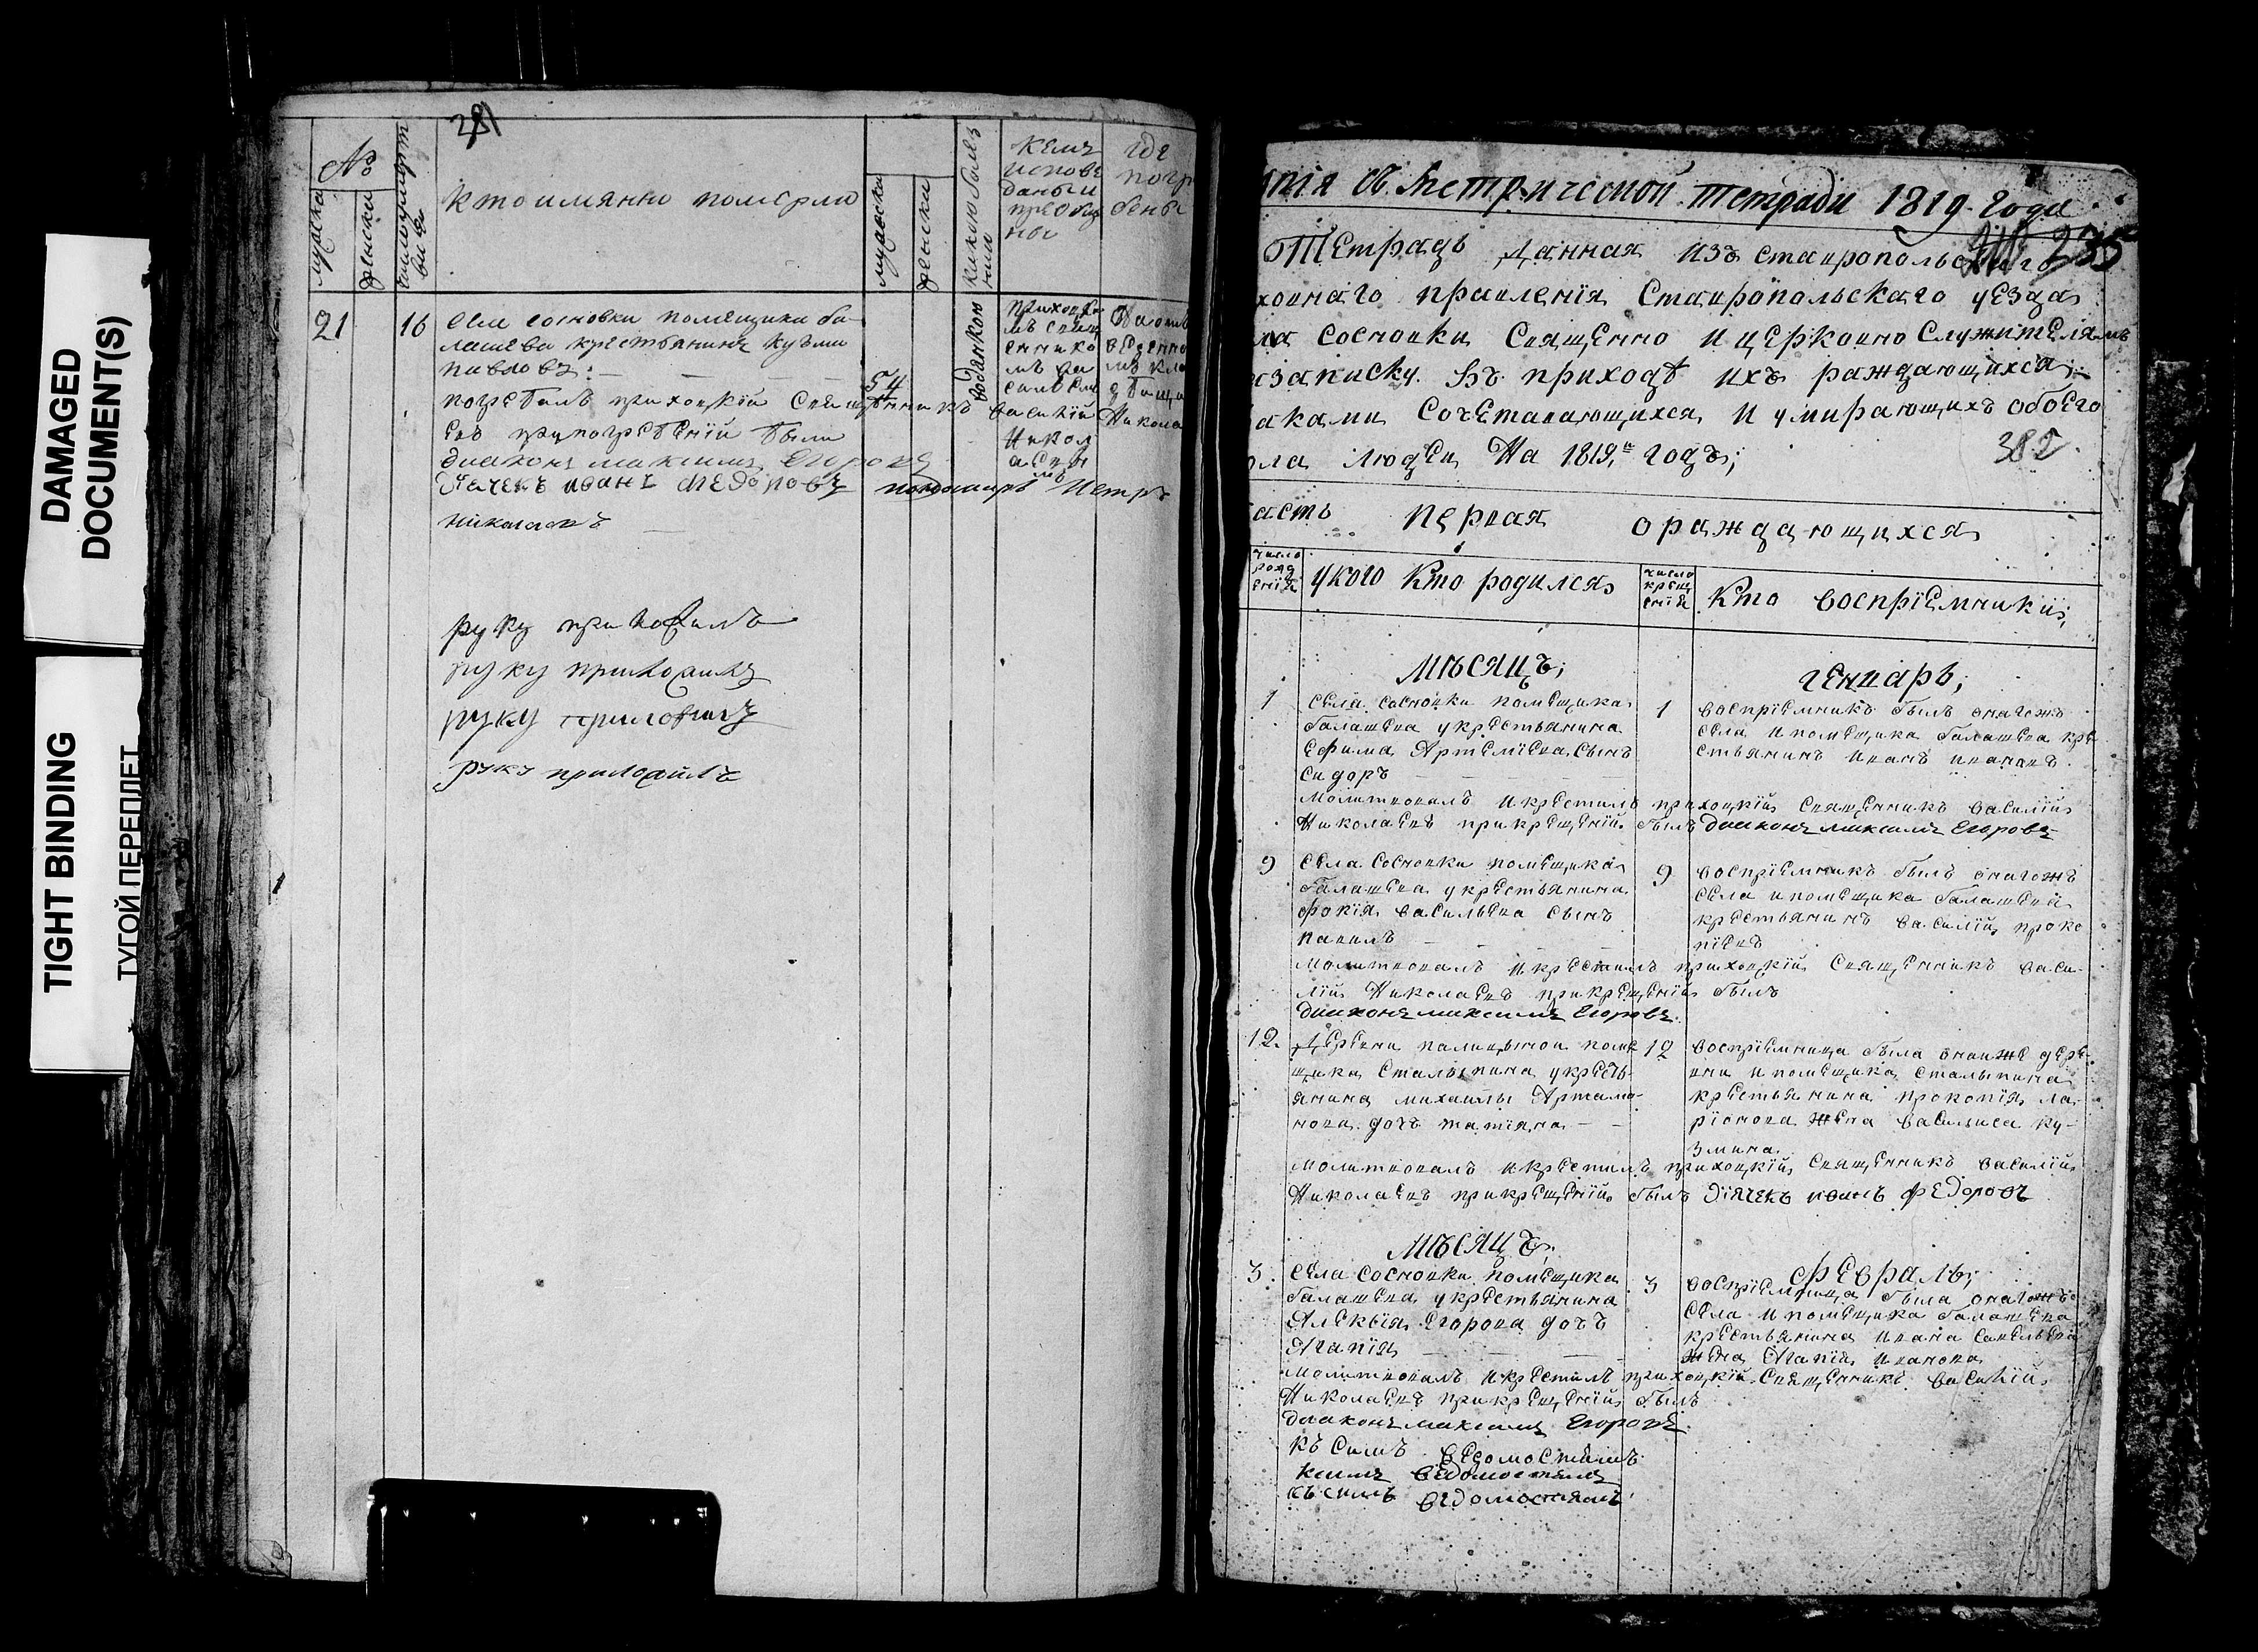 DAMAGED
DOCUMENT(S)
TIGHT BINDING
ТУГОЙ ПЕРЕПЛЕТ
281
№
мужеска
женска
кто имянно померли
мужеска
женска
кемъ
испове
даны и
приобще
ны
где
погр
бены
21
16
села сосновки помещика ба-
лашева крестьянинъ кузма
павловъ:
54
водянкою
приходски
мъ свящ
еннико
мъ ва
силием
Никол
аевы
мъ
На отв
еденно
мъ кла
дбищи
погребалъ приходскїй Священникъ василїй Никола
евъ при погребенїи были
диаконъ максимъ Егоровъ
дьячекъ иванъ Федоровъ пономарь Петръ
николаевъ
руку приложилъ
руку приложилъ
руку приложилъ
руку приложилъ
пїя съ метрической тетради 1819 года
235
Тетрадь данная изъ ставропольскаго
ховнаго правленїя Ставропольскаго уезда
ла сосновки Священно и церковно служителямъ
записку въ приходѣ ихъ раждающихся
аками сочетавающихся и умирающихъ обоего
ола людей На 1819й годъ;
382.
асть первая о раждающихся
число
рожд
енїя
у кого кто родился
число
крещ
енїя
кто воспрїемники;
мѣсяцъ; генварь;
1
села сосновки помещика
балашева у крестьянина
ефима Артемїева сынъ
сидоръ
1
воспрїемникъ былъ онагожъ
села и помещика балашева кре
стьянинъ иванъ ивановъ
молитвовалъ и крестилъ приходскїй священникъ василїй
Николаевъ при крещенїй былъ диаконъ максимъ Егоровъ
9
села сосновки помещика
балашева у крестьянина
фокїя васильева сынъ
павилъ
9
воспрїемникъ былъ онагожъ
села и помещика балашева
крестьянинъ василїй проко
пїевъ
молитвовалъ и крестилъ приходскїй священникъ васи-
лїй Николаевъ при крещенїй былъ
диаконъ максимъ Егоровъ
12.
деревни палицыной поме
щика сталыпина у кресть-
янина михаилы Артамо-
нова дочь татїяна
12
воспрїемница была онойже дере-
вни и помещика сталыпина
крестьянина прокопїя ла-
рїонова жена василиса ку-
змина
молитвовалъ и крестилъ приходскїй священникъ василїй
Николаевъ при крещенїй былъ дїячекъ иванъ Федоровъ
мѣсяцъ; февраль;
3.
села сосновки помещика
балашева у крестьянина
Алексїя Егорова дочь
Агапїя
3
воспрїемница была онагожъ
села и помещика балашева
крестьянина ивана савельева
жена Агапїя иванова
молитвовалъ и крестилъ приходскїй священникъ василїй
Николаевъ при крещенїй былъ
диаконъ максимъ Егоровъ
къ симъ ведомостямъ
къ симъ ведомостямъ
къ симъ ведомостямъ